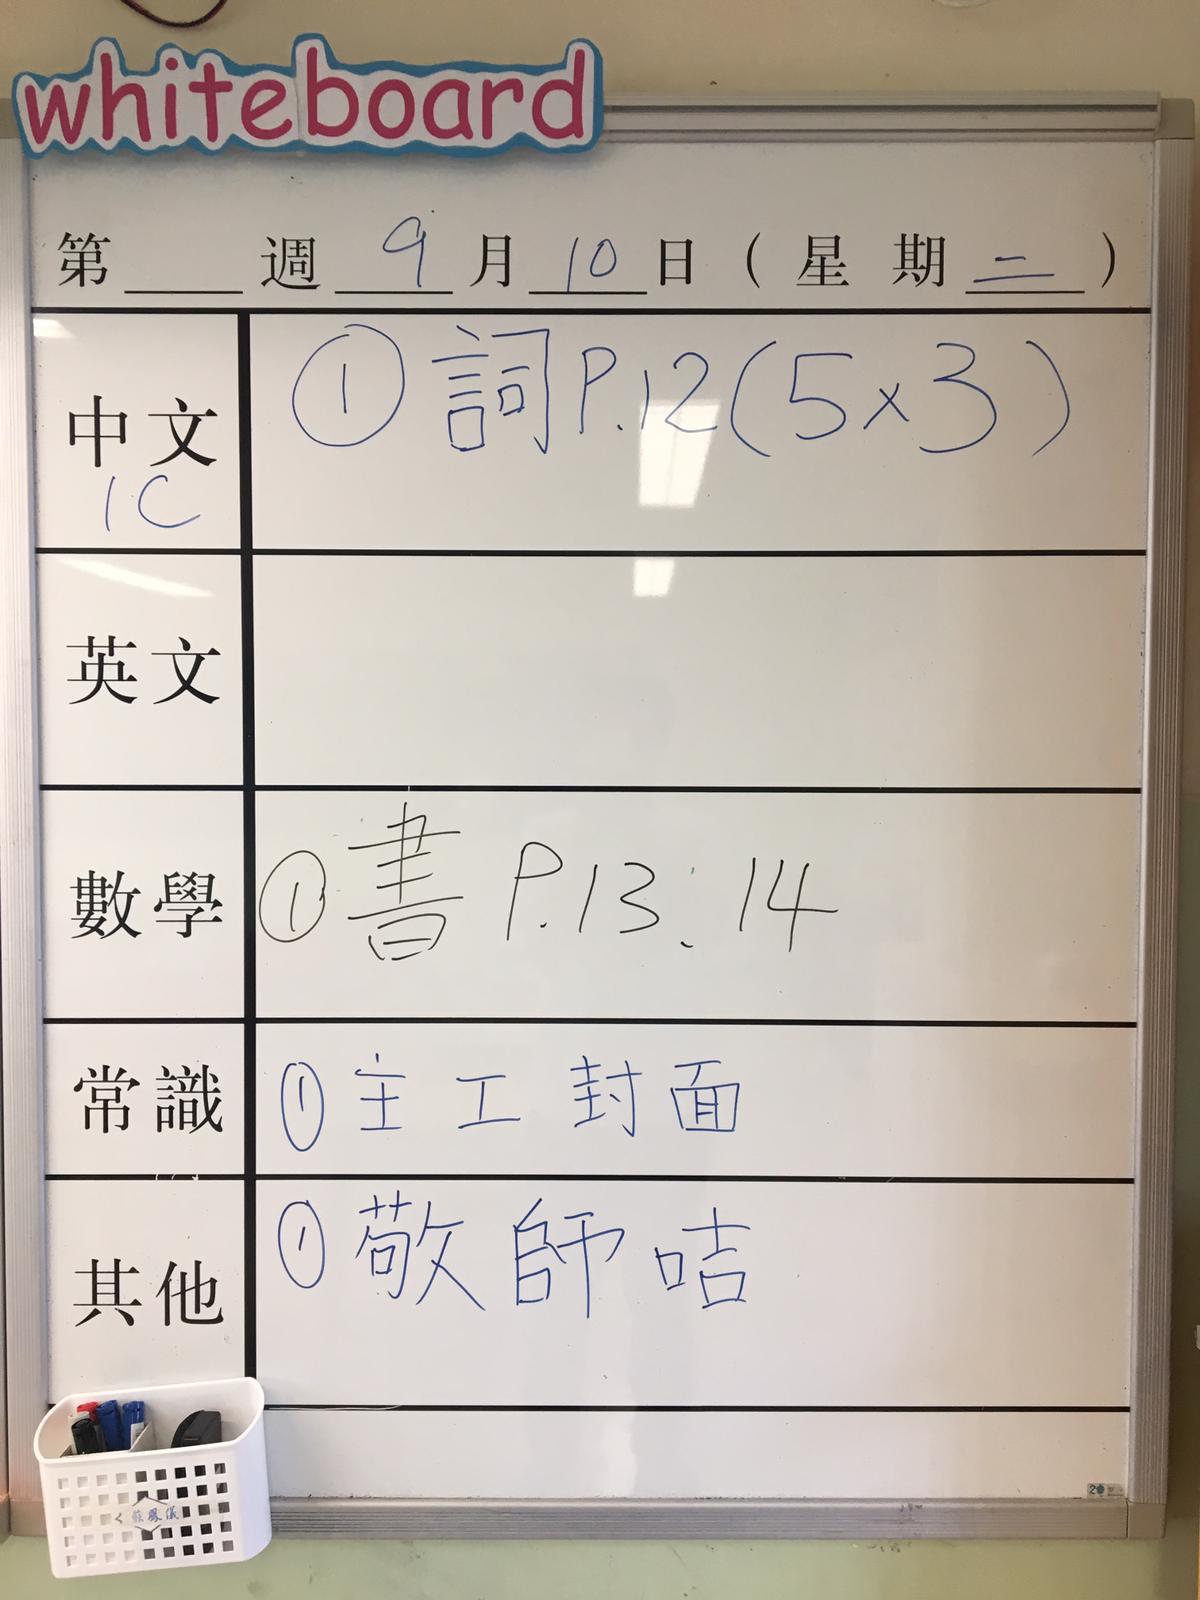 whiteboard
第____週 9 月 10 日 ( 星 期 二 )
中文 ① 詞 P.12 (5×3)
1C
英文
數學 ① 書 P.13; 14
常識 ① 主 工 封 面
其他 ① 敬 師 咭
蘇鳳儀